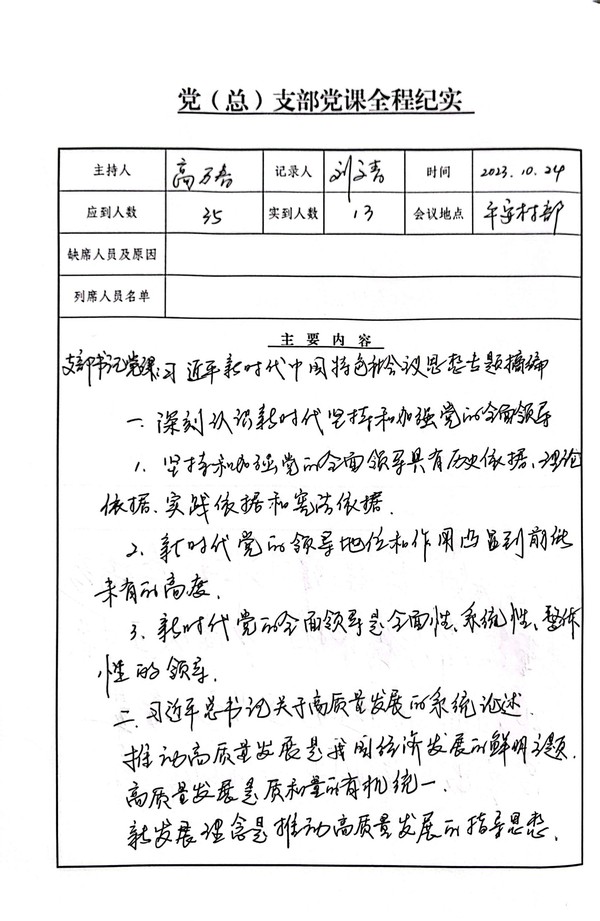 党（总）支部党课全程纪实
主持人 高万春 记录人 刘文清 时间 2023.10.24
应到人数 35 实到人数 13 会议地点 村部
缺席人员及原因
列席人员名单
主要内容
支部书记党课：习近平新时代中国特色社会主义思想专题摘编
一、深刻认识新时代坚持和加强党的全面领导
1、坚持和加强党的全面领导具有历史依据、理论
依据、实践依据和宪法依据.
2、新时代党的领导地位和作用凸显到前所
未有的高度.
3、新时代党的全面领导是全面性、系统性、整体
性的领导.
二、习近平总书记关于高质量发展的系统论述.
推动高质量发展是我国经济发展的鲜明主题.
高质量发展是质和量的有机统一.
新发展理念是推动高质量发展的指导思想.